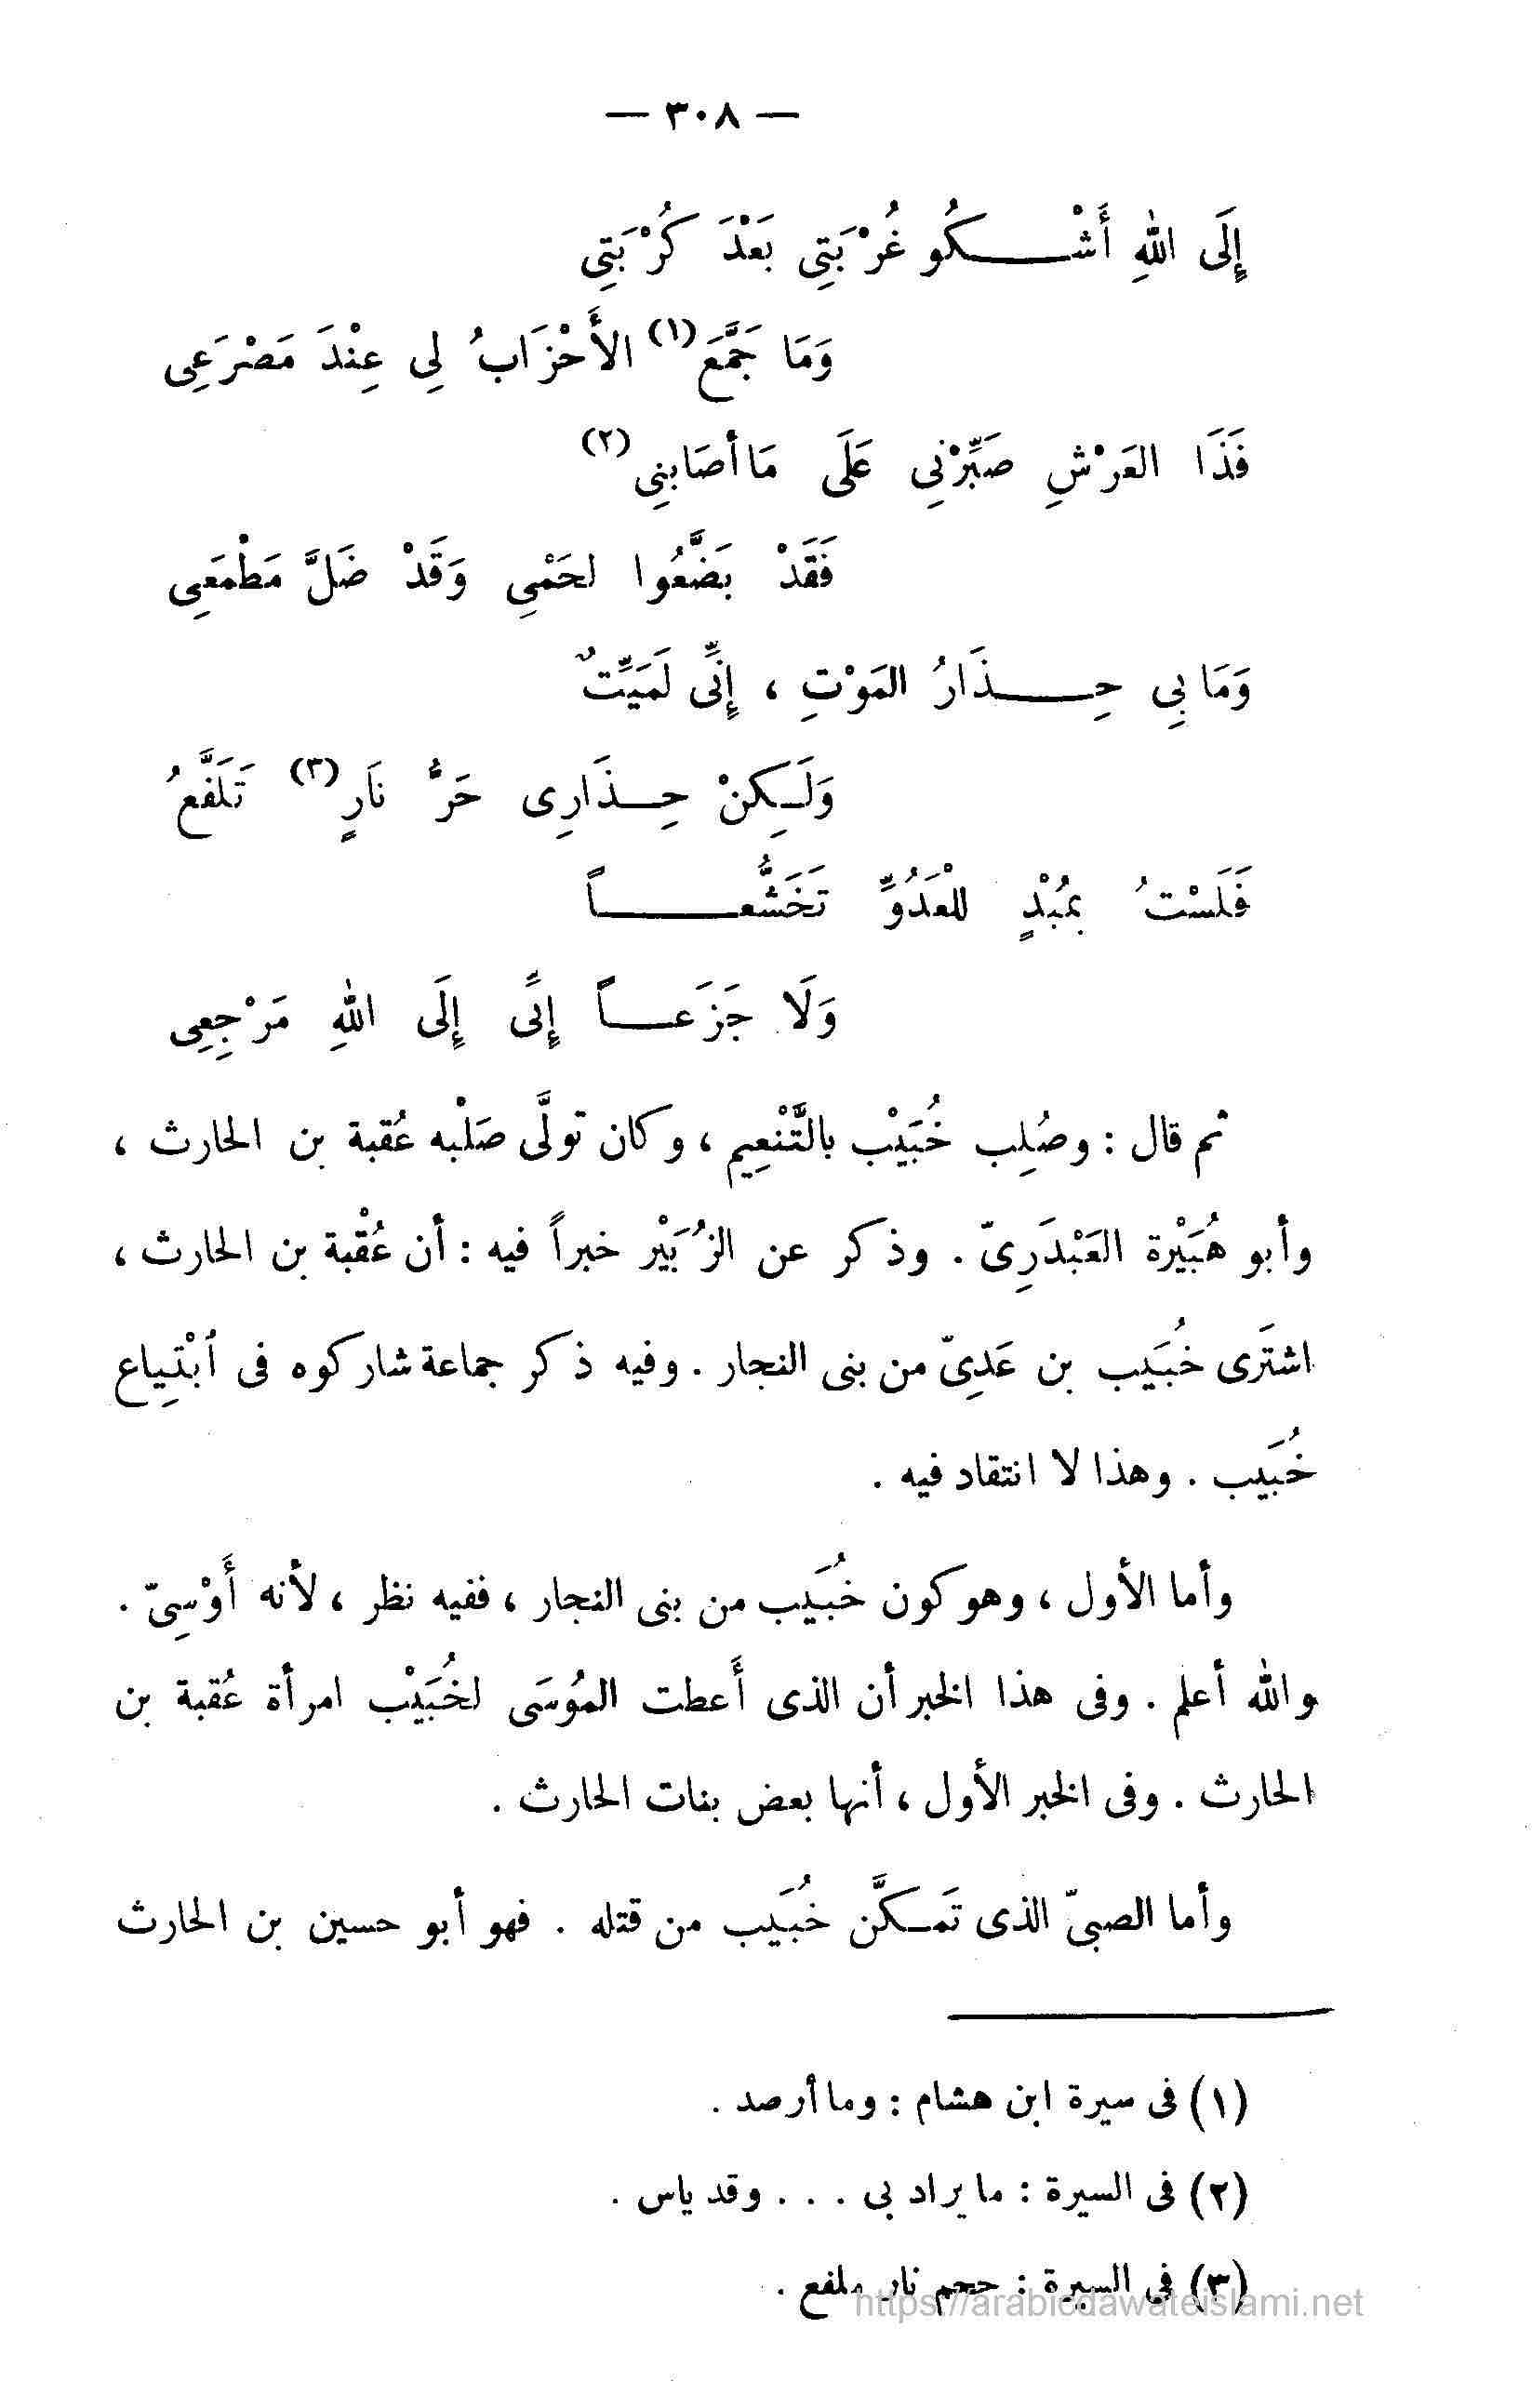 — ٣٠٨ —
إِلَى اللهِ أَشْكُو غُرْبَتِى بَعْدَ كُرْبَتِى
وَمَا جَمَّعَ (١) الأَحْزَابُ لِى عِنْدَ مَصْرَعِى
فَذَا العَرْشِ صَبِّرْنِى عَلَى مَا أصَابنِى (٢)
فَقَدْ بَضَّعُوا لحَمْىِ وَقَدْ ضَلَّ مَطْمَعِى
وَمَا بِى حِذَارُ المَوْتِ ، إِنِّى لَمَيِّتٌ
وَلَكِنْ حِذَارِى حَرُّ نَارٍ (٣) تَلَفَّعُ
فَلَسْتُ بمُبْدٍ للْعَدُوِّ تَخَشُّعاً
وَلَا جَزَعاً إِنَّى إِلَى اللهِ مَرْجِعِى
ثم قال : وصُلِب خُبَيْب بالتَّنْعِيم ، وكان تولَّى صَلْبه عُقبة بن الحارث ،
وأبو هُبَيْرة العَبْدَرِىّ . وذكر عن الزُبَيْر خبراً فيه : أن عُقْبة بن الحارث ،
اشتَرى خُبَيب بن عَدِىّ من بنى النجار . وفيه ذكر جماعة شاركوه فى اُبْتِياع
خُبَيب . وهذا لا انتقاد فيه .
وأما الأول ، وهو كون خُبَيب من بنى النجار ، ففيه نظر ، لأنه أَوْسِىّ .
والله أعلم . وفى هذا الخبر أن الذى أَعطت المُوسَى لخُبَيْب امرأة عُقبة بن
الحارث . وفى الخبر الأول ، أنها بعض بنات الحارث .
وأما الصبىّ الذى تَمكَّن خُبَيب من قتله . فهو أبو حسين بن الحارث
(١) فى سيرة ابن هشام : وما أرصد .
(٢) فى السيرة : ما يراد بى . . . وقد ياس .
(٣) فى السيرة : جحم نار ملفع .
https://arabicdawateislami.net